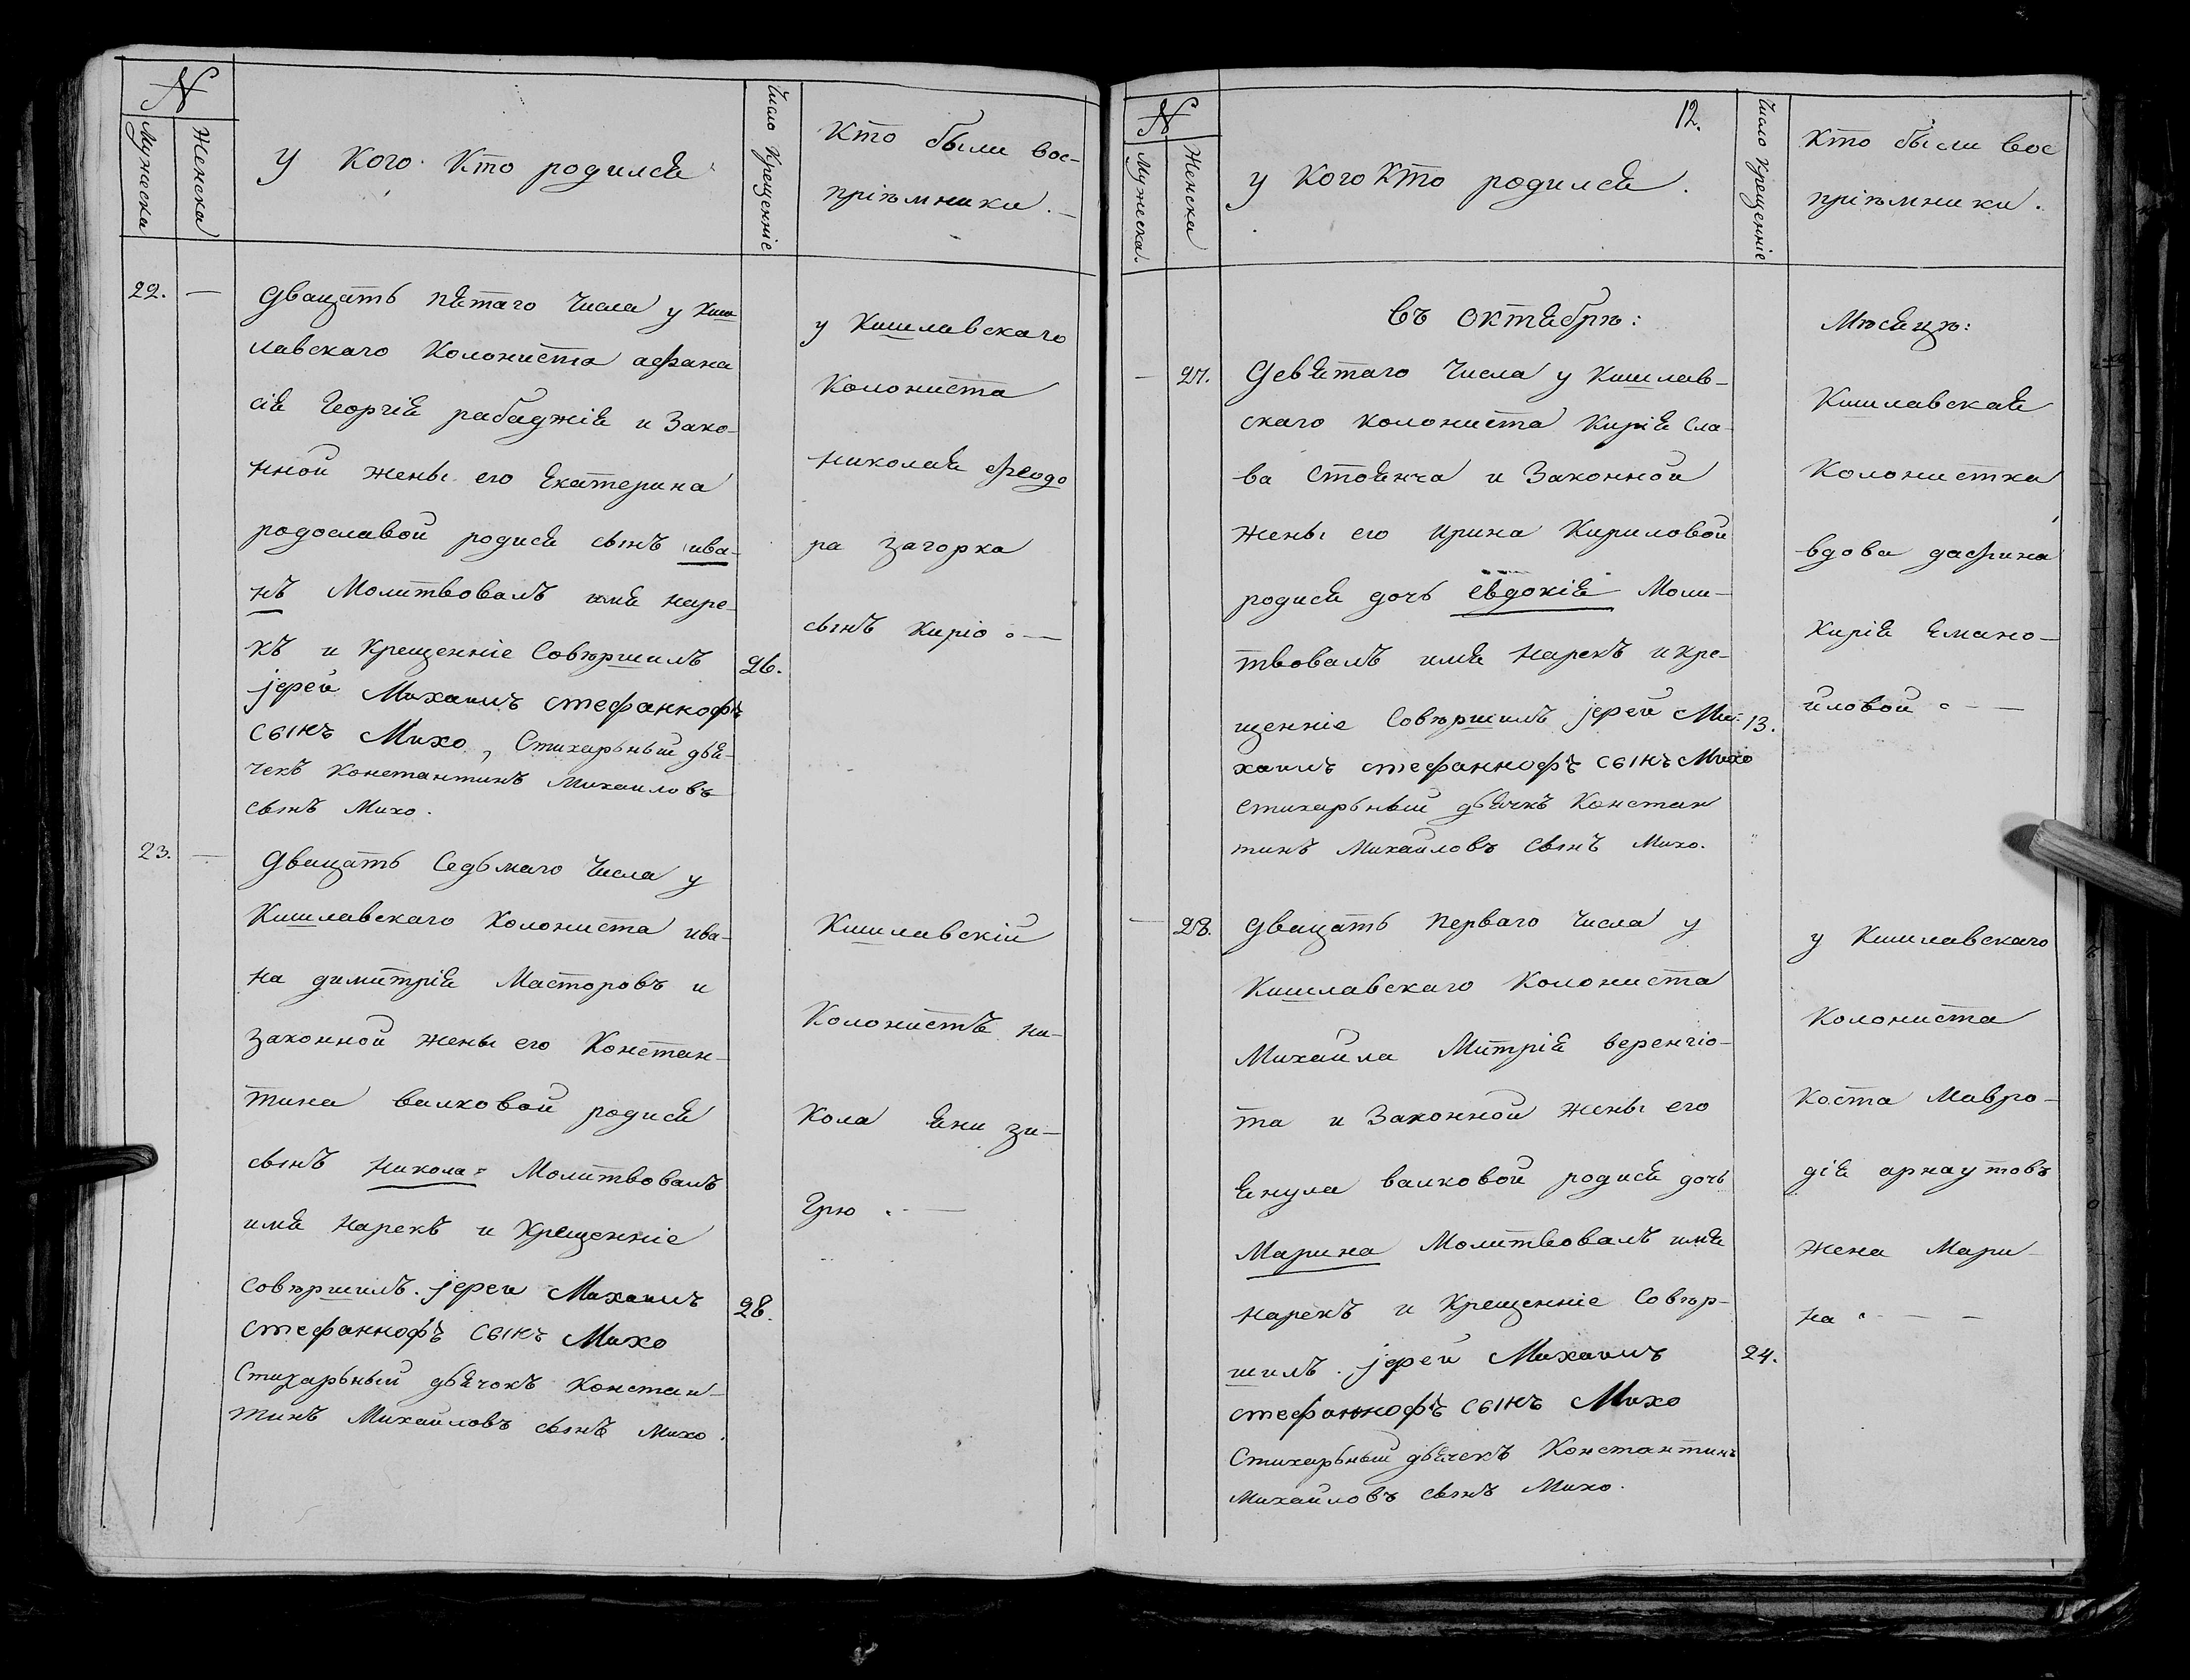 N
Мужеска
Женска
у кого кто родилсѧ
Число Крещенніе
Кто были вос-
пріѣмники.
22. —
Двацать пѧтаго числа у Киш
лавскаго Колониста афана
сіѧ Георгіѧ рабаджіѧ и Зако-
нной жены его Екатерина
родославой родисѧ сынъ ива-
нъ Молитвовалъ имѧ наре-
къ и Крещенніе Совѣршилъ
26.
јерей Михаилъ стефанкофъ
сынъ Михо, Стихарьный дьѧ-
чекъ Константинъ Михаиловъ
сынъ Михо.
у Кишлавскаго
Колониста
николаѧ феодо
ра загорка
сынъ Киріо
23. —
Двацать Седьмаго числа у
Кишлавскаго Колониста ива-
на димитріѧ Масторовъ и
законной жены его Констан-
тина валковой родисѧ
сынъ никола Молитвовалъ
имѧ нарекъ и Крещенніе
совѣршилъ. јереи Михаилъ
28.
стефанкофъ сынъ Михо
Стихарьный дьѧчокъ Констан-
тинъ Михаиловъ сынъ Михо.
Кишлавскій
Колонистъ ни-
кола ѧни зи-
грю
N
Мужеска.
Женска
12.
у кого кто родилсѧ.
Число Крещенніе
Кто были вос
пріѣмники.
Въ Октѧбрѣ:
Мѣсѧцѣ:
— 27.
Девѧтаго числа у Кишлав-
скаго колониста Киріѧ сла-
ва стоѧнча и Законной
жены его ирина Кириловой
родисѧ дочь евдокіѧ Моли-
твовалъ имѧ нарекъ и кре-
щенніе Совѣршилъ јерей Ми-
13.
хаилъ стефанкофъ сынъ Михо
стихарьный дьѧчкъ Констан
тинъ Михаиловъ сынъ Михо.
Кишлавскаѧ
Колонистка
вдова дафина
Киріѧ Емано-
иловой
— 28.
Двацать перваго числа у
Кишлавскаго Колониста
Михаила Митріѧ веренгіо-
та и Законной жены его
ѧнула валковой родисѧ дочь
Марина Молитвовалъ имѧ
нарекъ и Крещенніе Совѣр-
шилъ. јерей Михаилъ
24.
стефанкофъ сынъ Михо
Стихарьный дьѧчекъ Константинъ
Михаиловъ сынъ Михо.
у Кишлавскаго
Колониста
Коста Мавро-
діѧ арнаутовъ
жена Мари-
на